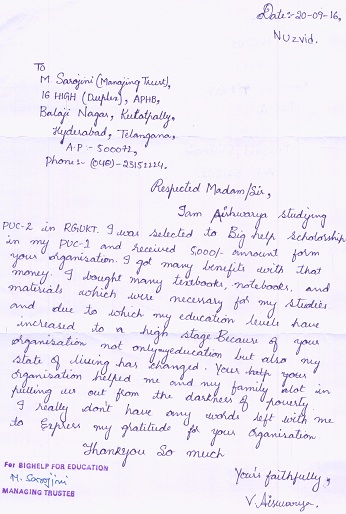 Date:- 20-09-16,
Nuzvid.
To
M. Sarojini (Managing Trust),
16 HIGH (Duplex), APHB,
Balaji Nagar, Kukatpally,
Hyderabad, Telangana,
A.P :- 500072,
Phone :- (040)-23151224.
Respected Madam/Sir,
Iam Aishwarya studying
PUC-2 in RGUKT. I was selected to Big help Scholorship
in my PUC-1 and received 5,000/- amount form
your organisation. I got many benefits with that
money. I bought many textbooks, notebooks, and
materials which were necessary for my studies
and due to which my education levels have
increased to a high stage. Because of your
organisation not only my education but also my
state of living has changed. Your help your
organisation helped me and my family alot in
pulling us out from the darkness of poverty.
I really don't have any words left with me
to Express my gratitude for your Organisation
Thankyou So much
For BIGHELP FOR EDUCATION
M. Sarojini
MANAGING TRUSTEE
Your's faithfully,
V. Aiswarya.